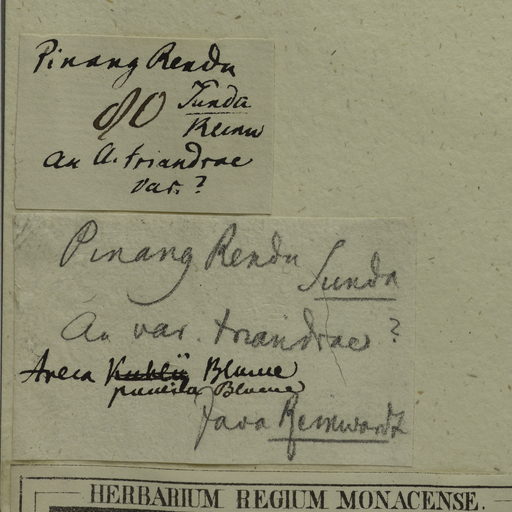 Pinang Rendu
80 Sunda
Reinw
an A. triandrae
var. ?
Pinang Rendu
Sunda
An var. triandrae ?
Areca Kuhlii Blume
pumila Blume
Java Reinwardt
HERBARIUM REGIUM MONACENSE.